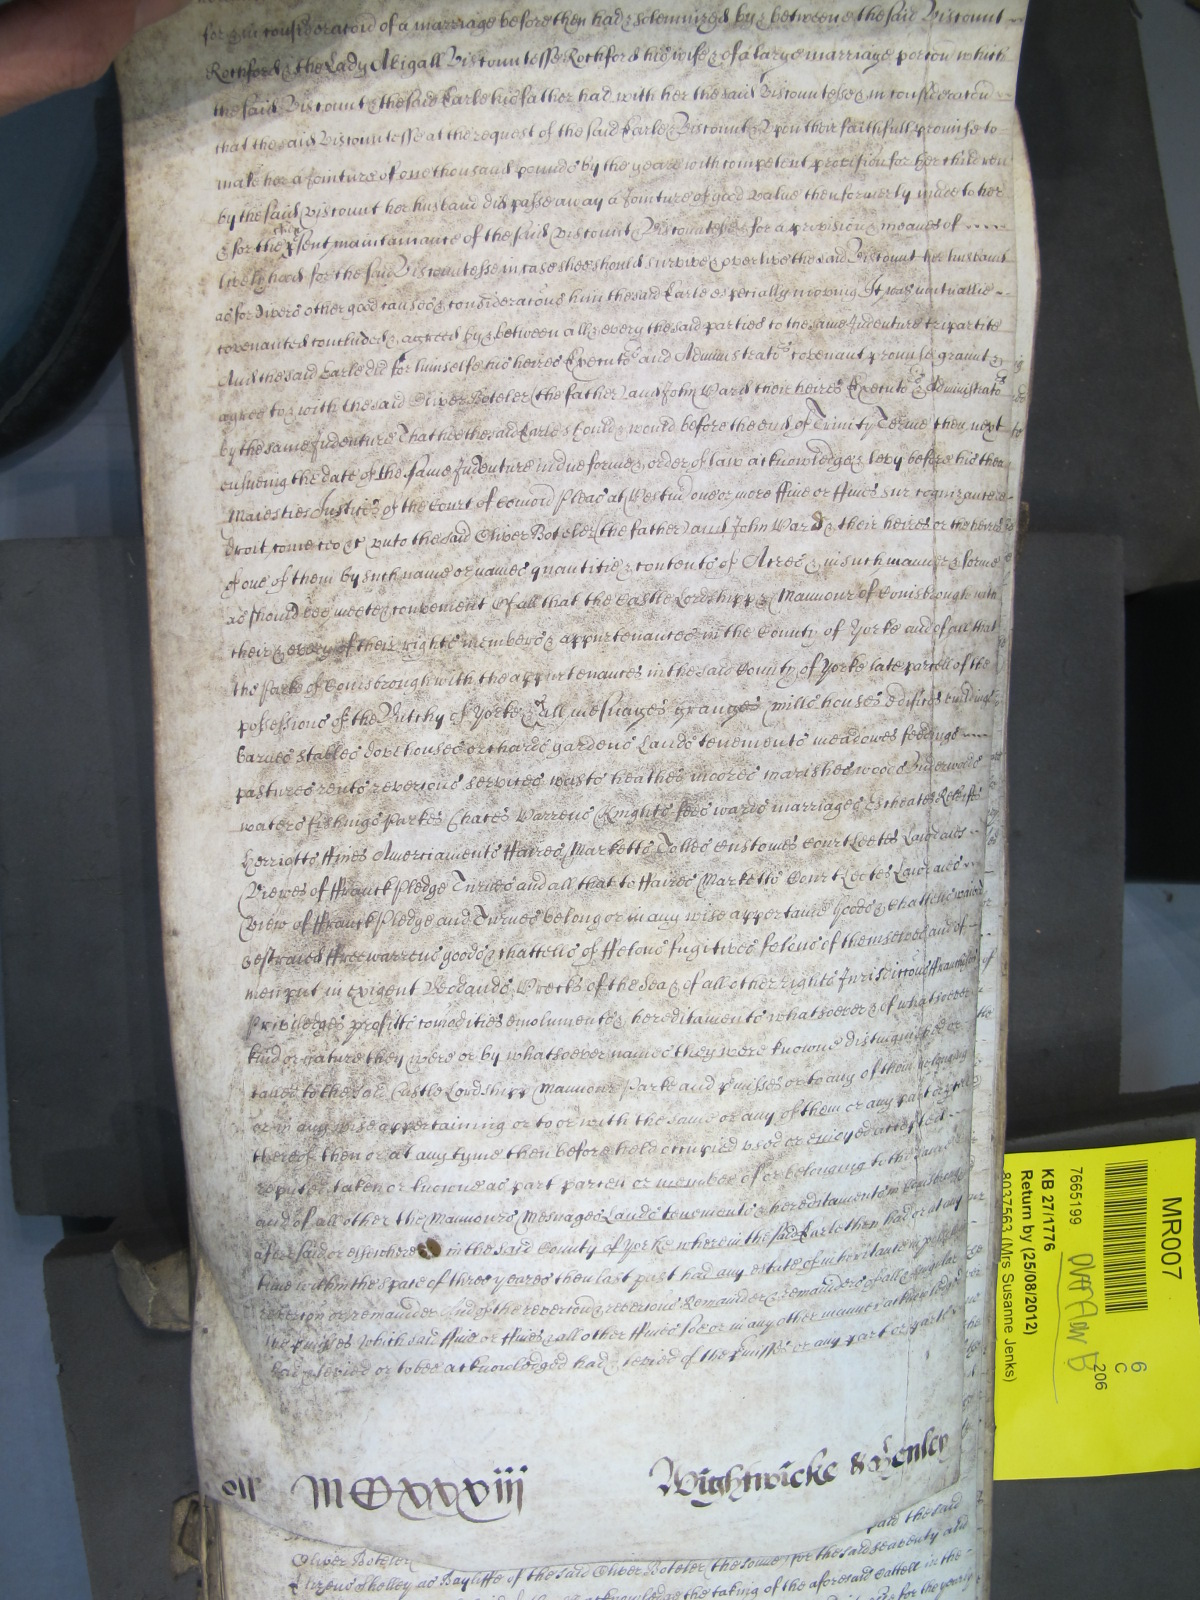 for & in consideracoñ of a marriage before then had & solemnized by & betweene the said Viscount
Rochford & the Lady Abigall Viscountesse Rochford his wife & of a large marriage porcon which
the said Viscount & the said Earle his father had with her the said Viscountesse & in consideracoñ
that the said Viscountesse at the request of the said Earle & Viscount & vpon their faithfull promise to
make her a Joincture of one thousand pounds by the yeare with competent provision for her children
by the said Viscount her husband did passe away a Joincture of good value then formerly made to her
& for the psent maintainance of the said Viscount & Viscountesse & for a provision & meanes of
livelyhood for the said Viscountesse in case shee should survive & overlive the said Viscount her husband
as for divers other good causes & consideracons him the said Earle especially moving It was mutuallie
covenanted concluded & agreed by & between all & every the said parties to the same Indenture tripartite
And the said Earle did for himselfe his heires Executors and Administrators covenant promise graunt &
agree to & with the said Oliver Boteler (the father) and John Ward their heires Executors & Administrators
by the same Indenture That hee the said Earle should & would before the end of Trinity Terme then next
ensueing the date of the same Indenture in due forme & order of law acknowledge & levy before his then
Maiesties Justices of the Court of Comon Pleas at Westm̃ one or more ffine or ffines sur cognizance de
droit come ceo &c vnto the said Oliver Boteler (the father) and John Ward & their heires or the heires
of one of them by such name or names quantitie & contents of Acres & in such manner & forme
as should bee meete & convenient Of all that the Castle Lordshipp & Mannour of Conisbrough with
their & every of their rights members & appurtenances in the County of Yorke and of all that
the Parke of Conisbrough with the appurtenances in the said County of Yorke late parcell of the
possessions of the Dutchy of Yorke & all mesuages granges mills houses edifices buildings
barnes stables dovehouses orchards gardens Lands tenements meadowes feedings
pastures rents revercons services wasts heathes moores marishes woods Underwoods
waters fishings Parkes Chaces Warrens Knights fees wards marriages Escheates Releifes
Herriotts ffines Amerciaments ffaires Marketts Tolles customes Court Leetes Lawdaies
Viewes of ffranck Pledge Turnes and all that to ffaires Marketts Court Leetes Lawdaies
View of ffranck Pledge and Turnes belong or in any wise appertaine Goods & chattells waived
& estraied ffreewarrens goods & chattells of ffelons fugitives felons of themselves and of
men put in exigent Deodands Wrecks of the Sea & of all other rights Jurisdiccons ffranchises
Priviledges profitts comodities emoluments & hereditaments whatsoever & of whatsoever
kind or nature they were or by whatsoever names they were knowne distinguished or
called to the said Castle Lordshipp Mannour Parke and pmisses or to any of them belonging
or in any wise appertaining or to or with the same or any of them or any part or parcell
thereof then or at any tyme then before held occupied vsed or enioyed accepted
reputed taken or knowne as part parcell or member of or belonging to the same
and of all other the Mannours Mesuages Lands tenements & hereditaments in Conisbrough
aforesaid or elsewhere in the said County of Yorke wherein the said Earle then had or at any
time within the space of three yeares then last past had any estate of inheritance in possession
revercon or remainder And of the revercon & revercons Remainder & remainders of all & singular
the pmisses Which said ffine or ffines & all other ffines soe or in any other manner acknowledged
had & levied or to bee acknowledged had & levied of the pmisses or any part or parte
MCxxxviij
Wightwicke & Henley
said the said
Oliver Boteler
Shelley as Bayliffe of the said Oliver Boteler the sonne for the said seaventy and
acknowledge the taking of the aforesaid cattell in the
for the yearly
MR007
7665199
KB 27/1776
Return by (25/08/2012)
8037563 (Mrs Susanne Jenks)
206
6
C